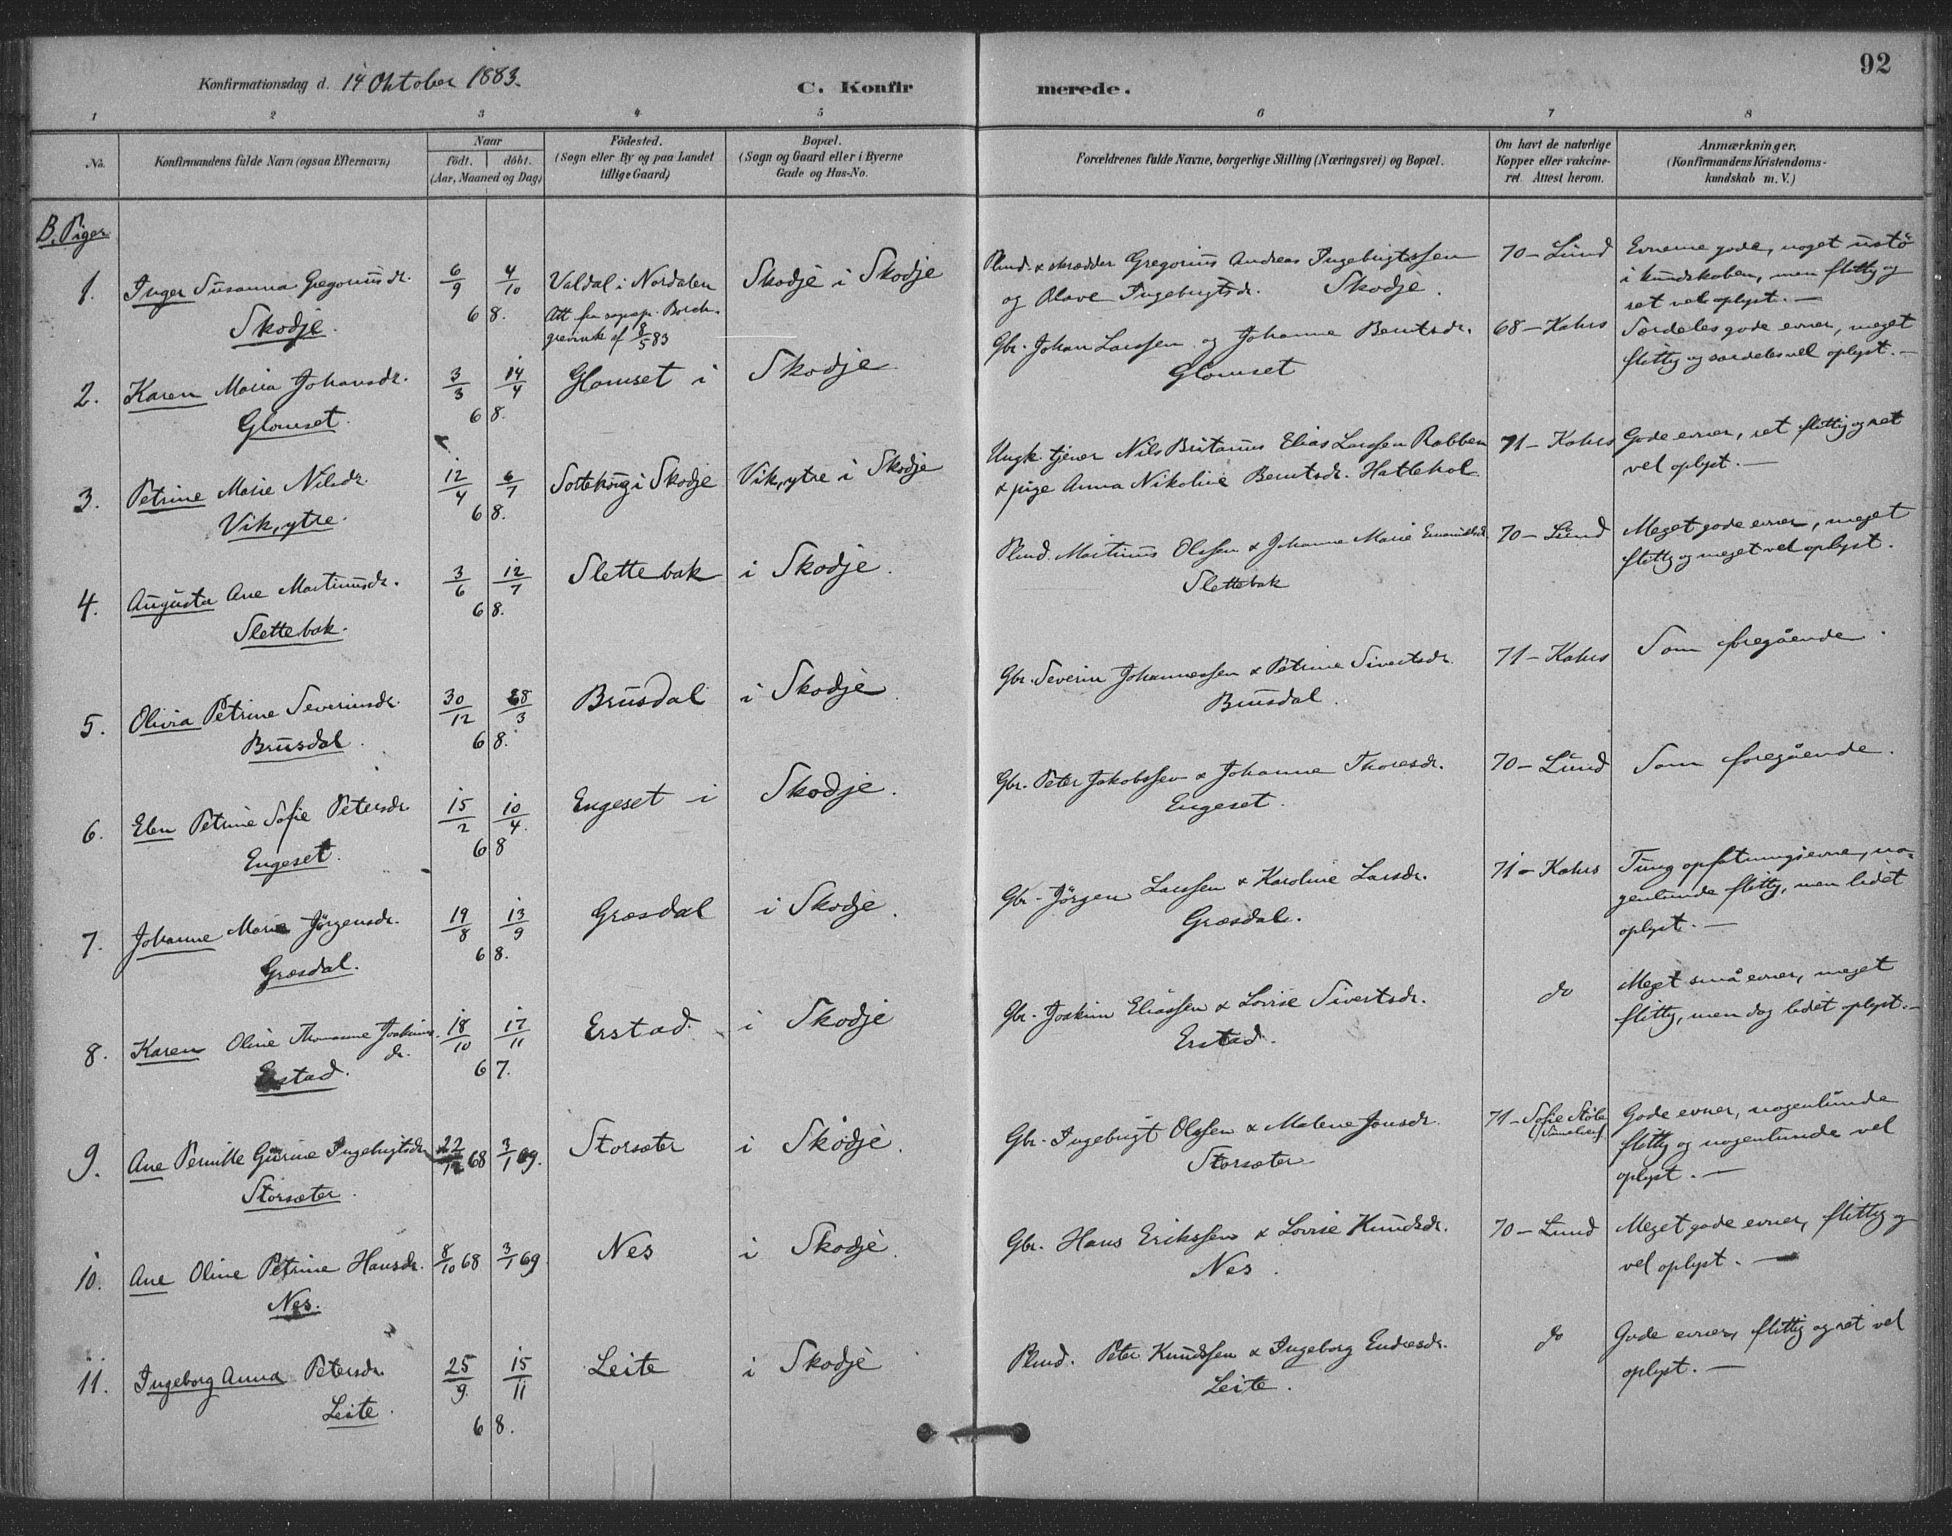 92
Konfirmationsdag d. 14 Oktober 1883.
C. Konfirmerede.
1 2 3 4 5 6 7 8
No.
Konfirmandens fulde Navn (ogsaa Efternavn)
Naar
födt. döbt.
(Aar, Maaned og Dag)
Födested.
(Sogn eller By og paa Landet
tillige Gaard)
Bopæl.
(Sogn og Gaard eller i Byerne
Gade og Hus-No.
Forældrenes fulde Navne, borgerlige Stilling (Næringsvei) og Bopæl.
Om havt de naturlige
Kopper eller vakcine-
ret. Attest herom.
Anmærkninger.
(Konfirmandens Kristendoms-
kundskab m. V.)
B. Piger
1. Inger Susanna Gregoriusdr. 6/9 4/10 Valdal i Nordalen Skodje i Skodje Plmd. & skrædder Gregorius Andreas Ingebrigtssen 70 - Lund Evnerne gode, noget ustö
Skodje. 68. Att fra sognep. Borch- og Olave Ingebrigtsdr. Skodje. i kundskaben, men flittig og
grevink af 8/5 83 ret vel oplyst. —
2. Karen Maria Johansdr. 3/3 14/4 Glomset i Skodje Gbr. Johan Larssen og Johanne Berntsdr. 68 - Kahrs Særdeles gode evner, meget
Glomset. 68. Glomset flittig og særdeles vel oplyst. —
3. Petrine Marie Nilsdr. 12/4 6/7 Sortehoug i Skodje Vik, ytre i Skodje Ungk. tjener Nils Britanus Elias Larssen Rabben 71 - Kahrs Gode evner, ret flittig og ret
Vik, ytre. 68. & pige Anna Nikoline Berntsdr. Hatlehol vel oplyst. —
4. Augusta Ane Martinusdr. 3/6 12/7 Slettebak i Skodje. Plmd. Martinus Olssen & Johanne Marie Emanuelsdr. 70 - Lund Meget gode evner, meget
Slettebak. 68. Slettebak flittig og meget vel oplyst.
5. Olivia Petrine Severinsdr. 30/12 28/3 Brusdal i Skodje Gbr. Severin Johannessen & Petrine Sivertsdr. 71 - Kahrs Som foregående.
Brusdal. 68. Brusdal.
6. Elen Petrine Sofie Petersdr 15/2 10/4 Engeset i Skodje. Gbr. Peter Jakobssen & Johanne Thoresdr. 70 - Lund Som foregående.
Engeset. 68 Engeset.
7. Johanne Marie Jörgensdr. 19/8 13/9 Græsdal i Skodje. Gbr. Jörgen Larssen & Karoline Larsdr. 71 - Kahrs Tung opfatningsevne, no-
Græsdal. 68. Græsdal. genlunde flittig, men lidet
oplyst. —
8. Karen Oline Thomasine Joakims- 18/10 17/11 Erstad. i Skodje Gbr. Joakim Eliassen & Lovise Sivertsdr. do Meget små evner, meget
dr. Erstad. 67. Erstad. flittig, men dog lidet oplyst. —
9. Ane Pernille Gurine Ingebrigtsdr. 22/12 68 3/1 69. Storsæter i Skodje Gbr. Ingebrigt Olssen & Malene Jonsdr. 71 - Sofie Stöle Gode evner, nogenlunde
Storsæter. Storsæter flittig og nogenlunde vel
oplyst. —
10. Ane Oline Petrine Hansdr. 8/10 68 3/1 69. Nes i Skodje. Gbr. Hans Erikssen & Lovise Knudsdr. 70 - Lund Meget gode evner, flittig og
Nes. Nes. vel oplyst. —
11. Ingeborg Anna Petersdr. 25/9 15/11 Leite i Skodje Plmd. Peter Knudssen & Ingeborg Endresdr. do Gode evner, flittig og ret vel
Leite. 68. Leite. oplyst. —